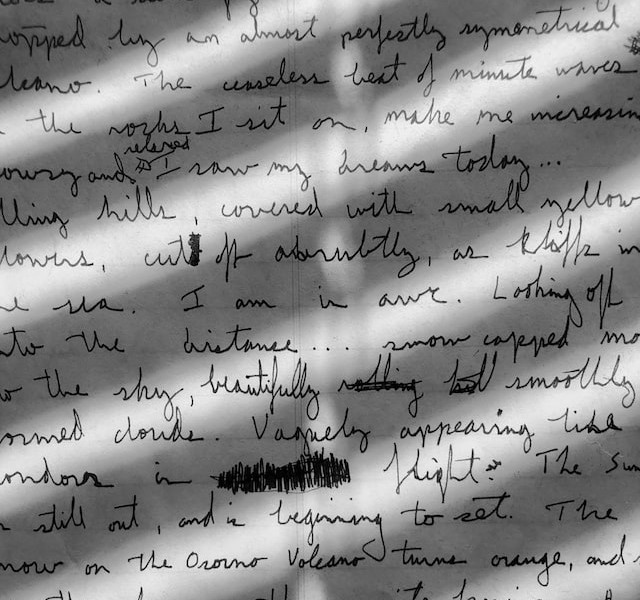 opped by an almost perfectly symmetrical
lcano. The ceaseless beat of minute waves
the rocks I sit on, make me increasin
relaxed
owsy and I saw my dreams today...
lling hills, covered with small yellow
lowers, cut off absrubtly, as kliffs in
he sea. I am in awe. Looking off
nto the distance.... snow capped mo
o the sky, beautifully rolling hill smoothly
ormed clouds. Vaguely appearing like
ondors in flight. The Sun
s still out, and is beginning to set. The
now on the Osorno Volcano turns orange, and